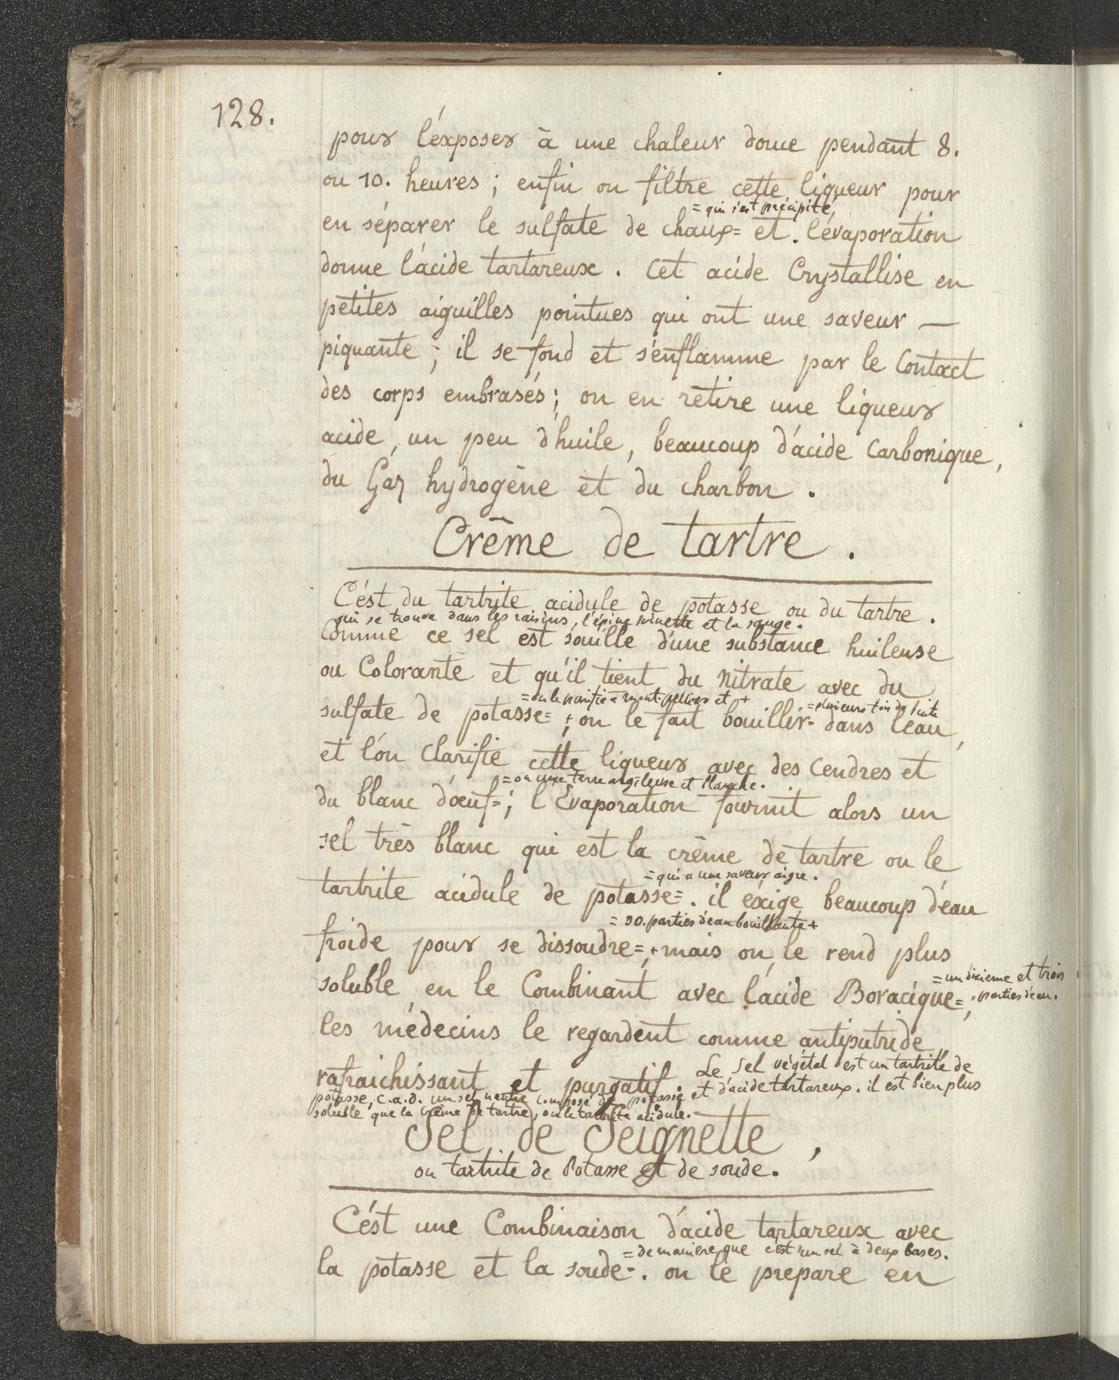 128.
pour l'éxposer à une chaleur douce pendant 8.
ou 10. heures ; enfin on filtre cette liqueur pour
= qui s'est précipité,
en séparer le sulfate de chaux= et . l'évaporation
donne l'ácide tartareux . Cet acide Crystallise en
petites aiguilles pointues qui ont une saveur —
piquante ; il se fond et s'enflamme par le Contact
des corps embrasés ; on en retire une liqueur
acide, un peu d'huile, beaucoup d'ácide Carbonique,
du Gaz hydrogène et du charbon .
Crême de tartre .
C'ést du tartrite acidule de potasse ou du tartre .
qui se trouve dans les raisins, l'épine vinette et la sauge .
Comme ce sel est souillé d'une substance huileuse
ou Colorante et qu'il tient du nitrate avec du
= on le purifie à montpellier et + = plusieurs fois de suite
sulfate de potasse= + ; on le fait bouillir= dans l'eau,
et l'ón Clarifie cette liqueur avec des Cendres et
= ou une terre argileuse et blanche .
du blanc d'oeuf= ; l'Evaporation fournit alors un
sel très blanc qui est la crême de tartre ou le
= qui a une saveur aigre .
tartrite acidule de potasse= . il éxige beaucoup d'éau
= 30. parties d'eau bouillante +
froide pour se dissoudre=, + mais on le rend plus
= un dixieme et trois
soluble en le Combinant avec l'ácide Boracique= ;
parties d'eau .
les médecins le regardent comme antiputride,
rafraichissant et purgatif . Le Sel végétal est un tartrite de
potasse, c.a.d. un sel neutre composé de potasse et d'acide tartareux . il est bien plus
soluble que la crême de tartre, ou le tartrite acidule .
Sel de Seignette ,
ou tartrite de Potasse et de soude .
C'ést une Combinaison d'ácide tartareux avec
= de maniere que c'est un sel à deux bases .
la potasse et la soude= . on le prepare en